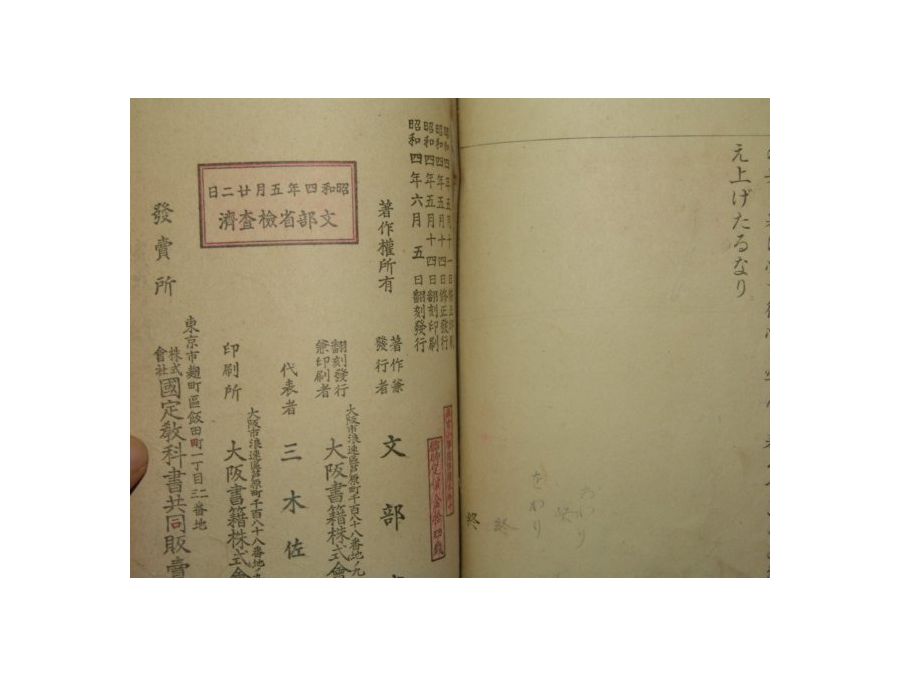 え上げたるなり
をわり
終
終
昭和四年五月十四日修正發行
昭和四年五月十四日翻刻印刷
昭和四年六月五日翻刻發行
著作權所有
著作兼
發行者
文部
翻刻發行
兼印刷者
大阪市浪速區芦原町千百八十八番地ノ九
大阪書籍株式會
代表者
三木佐
印刷所
大阪市浪速區芦原町千百八十八番地
大阪書籍株式會
昭和四年五月廿二日
文部省檢査濟
發賣所
東京市麹町區飯田町一丁目二二番地
株式
會社
國定教科書共同販賣